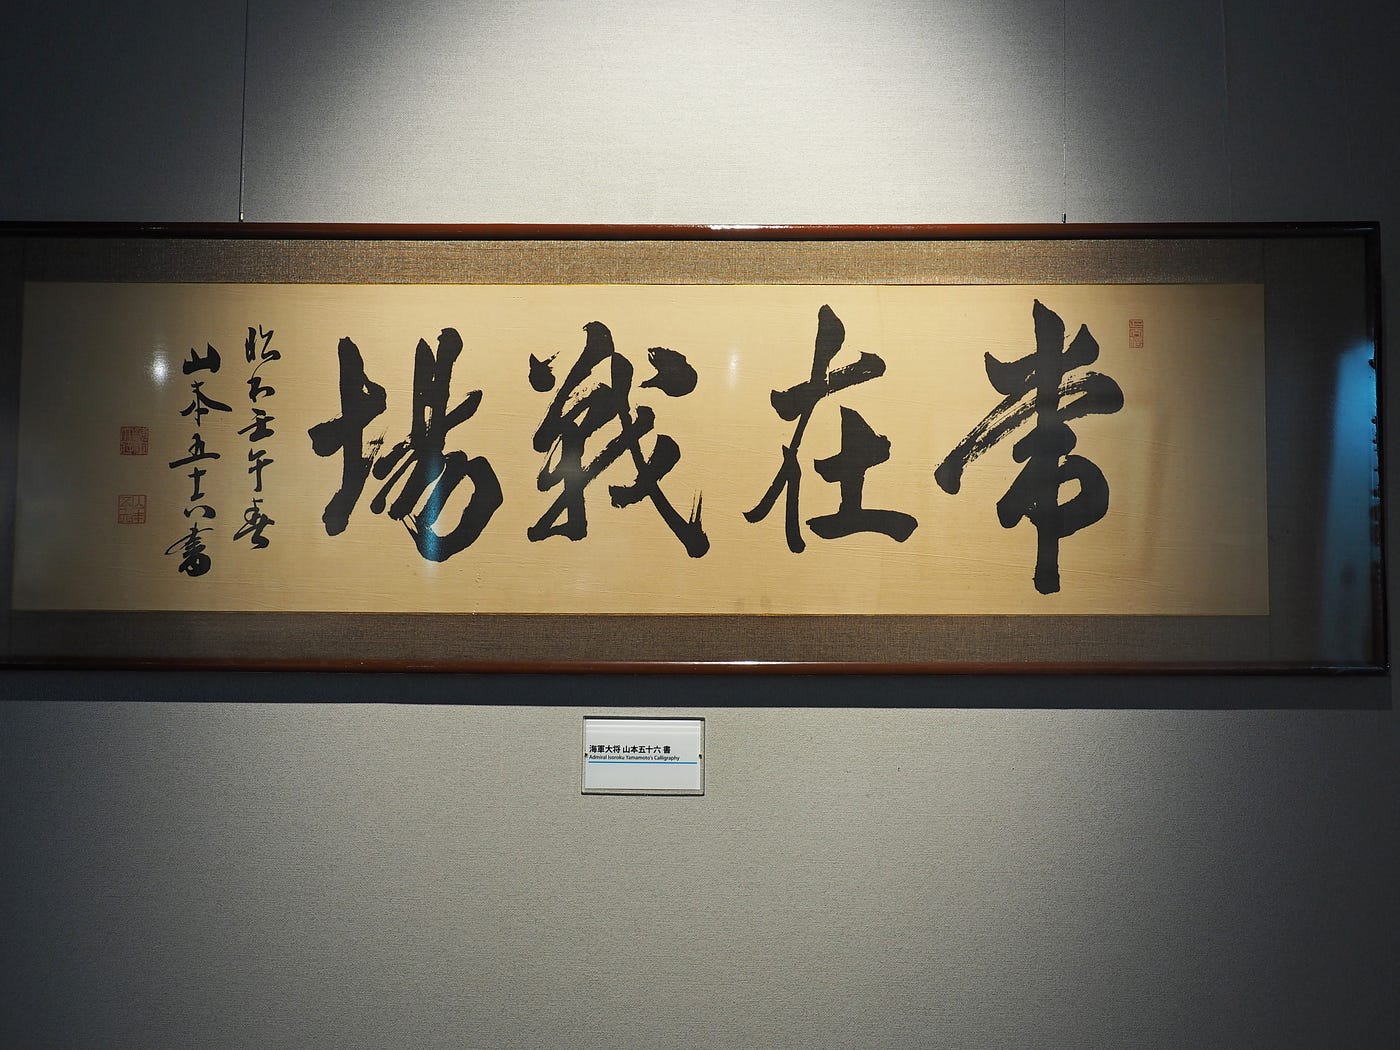 常在戰場
昭和壬午春
山本五十六書
海軍大将 山本五十六 書
Admiral Isoroku Yamamoto's Calligraphy